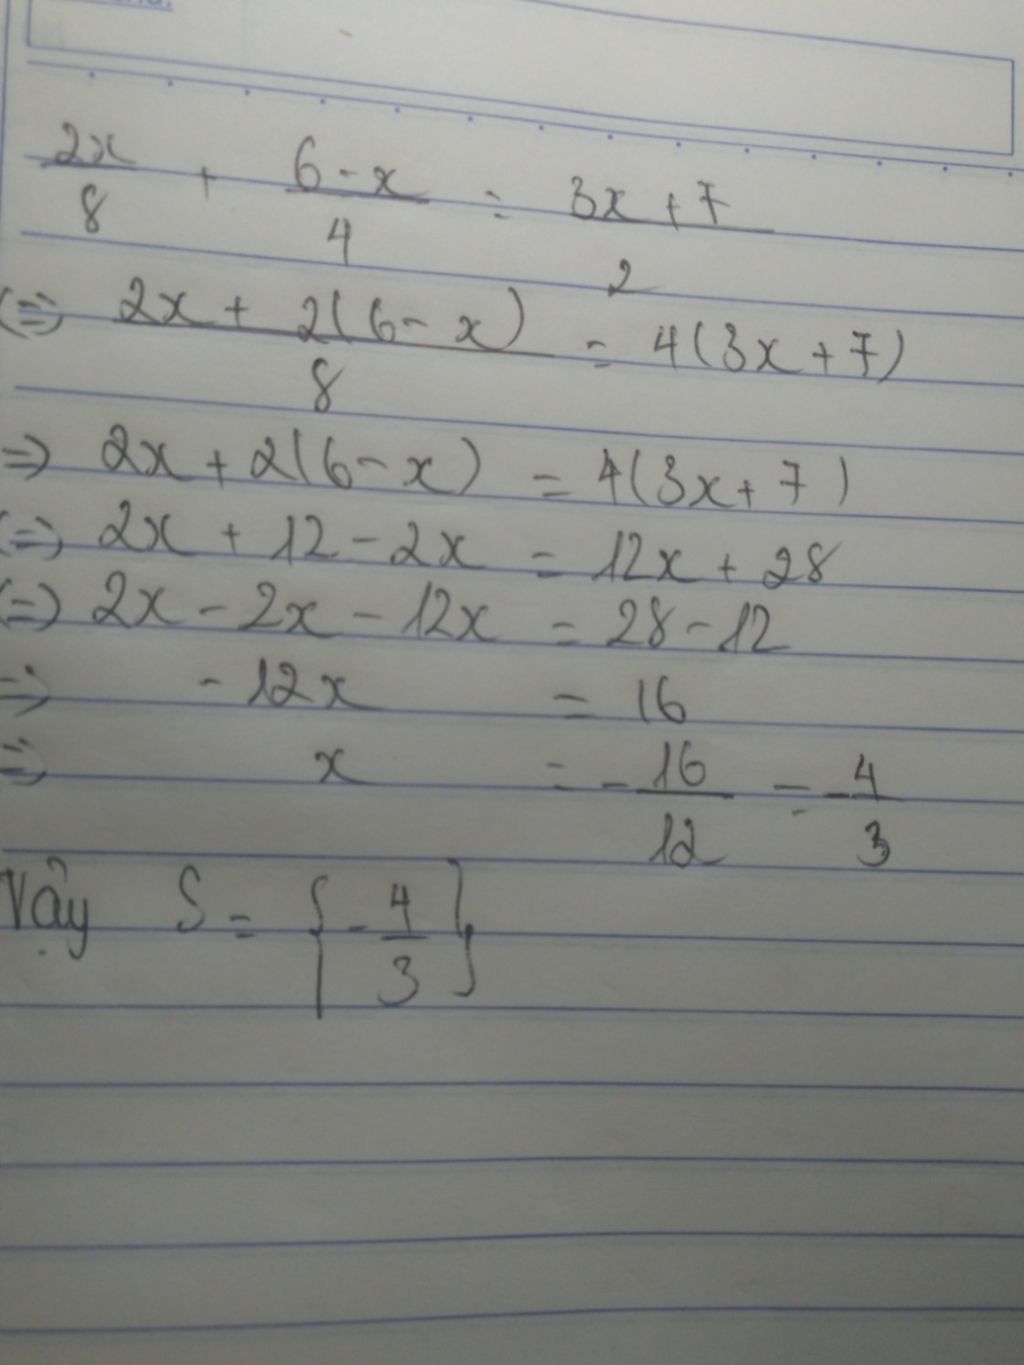 2x/8 + (6-x)/4 = (3x+7)/2
(=) (2x + 2(6-x))/8 = 4(3x+7)
=) 2x + 2(6-x) = 4(3x+7)
(=) 2x + 12 - 2x = 12x + 28
(=) 2x - 2x - 12x = 28 - 12
=) -12x = 16
=) x = -16/12 = -4/3
Vậy S = {-4/3}